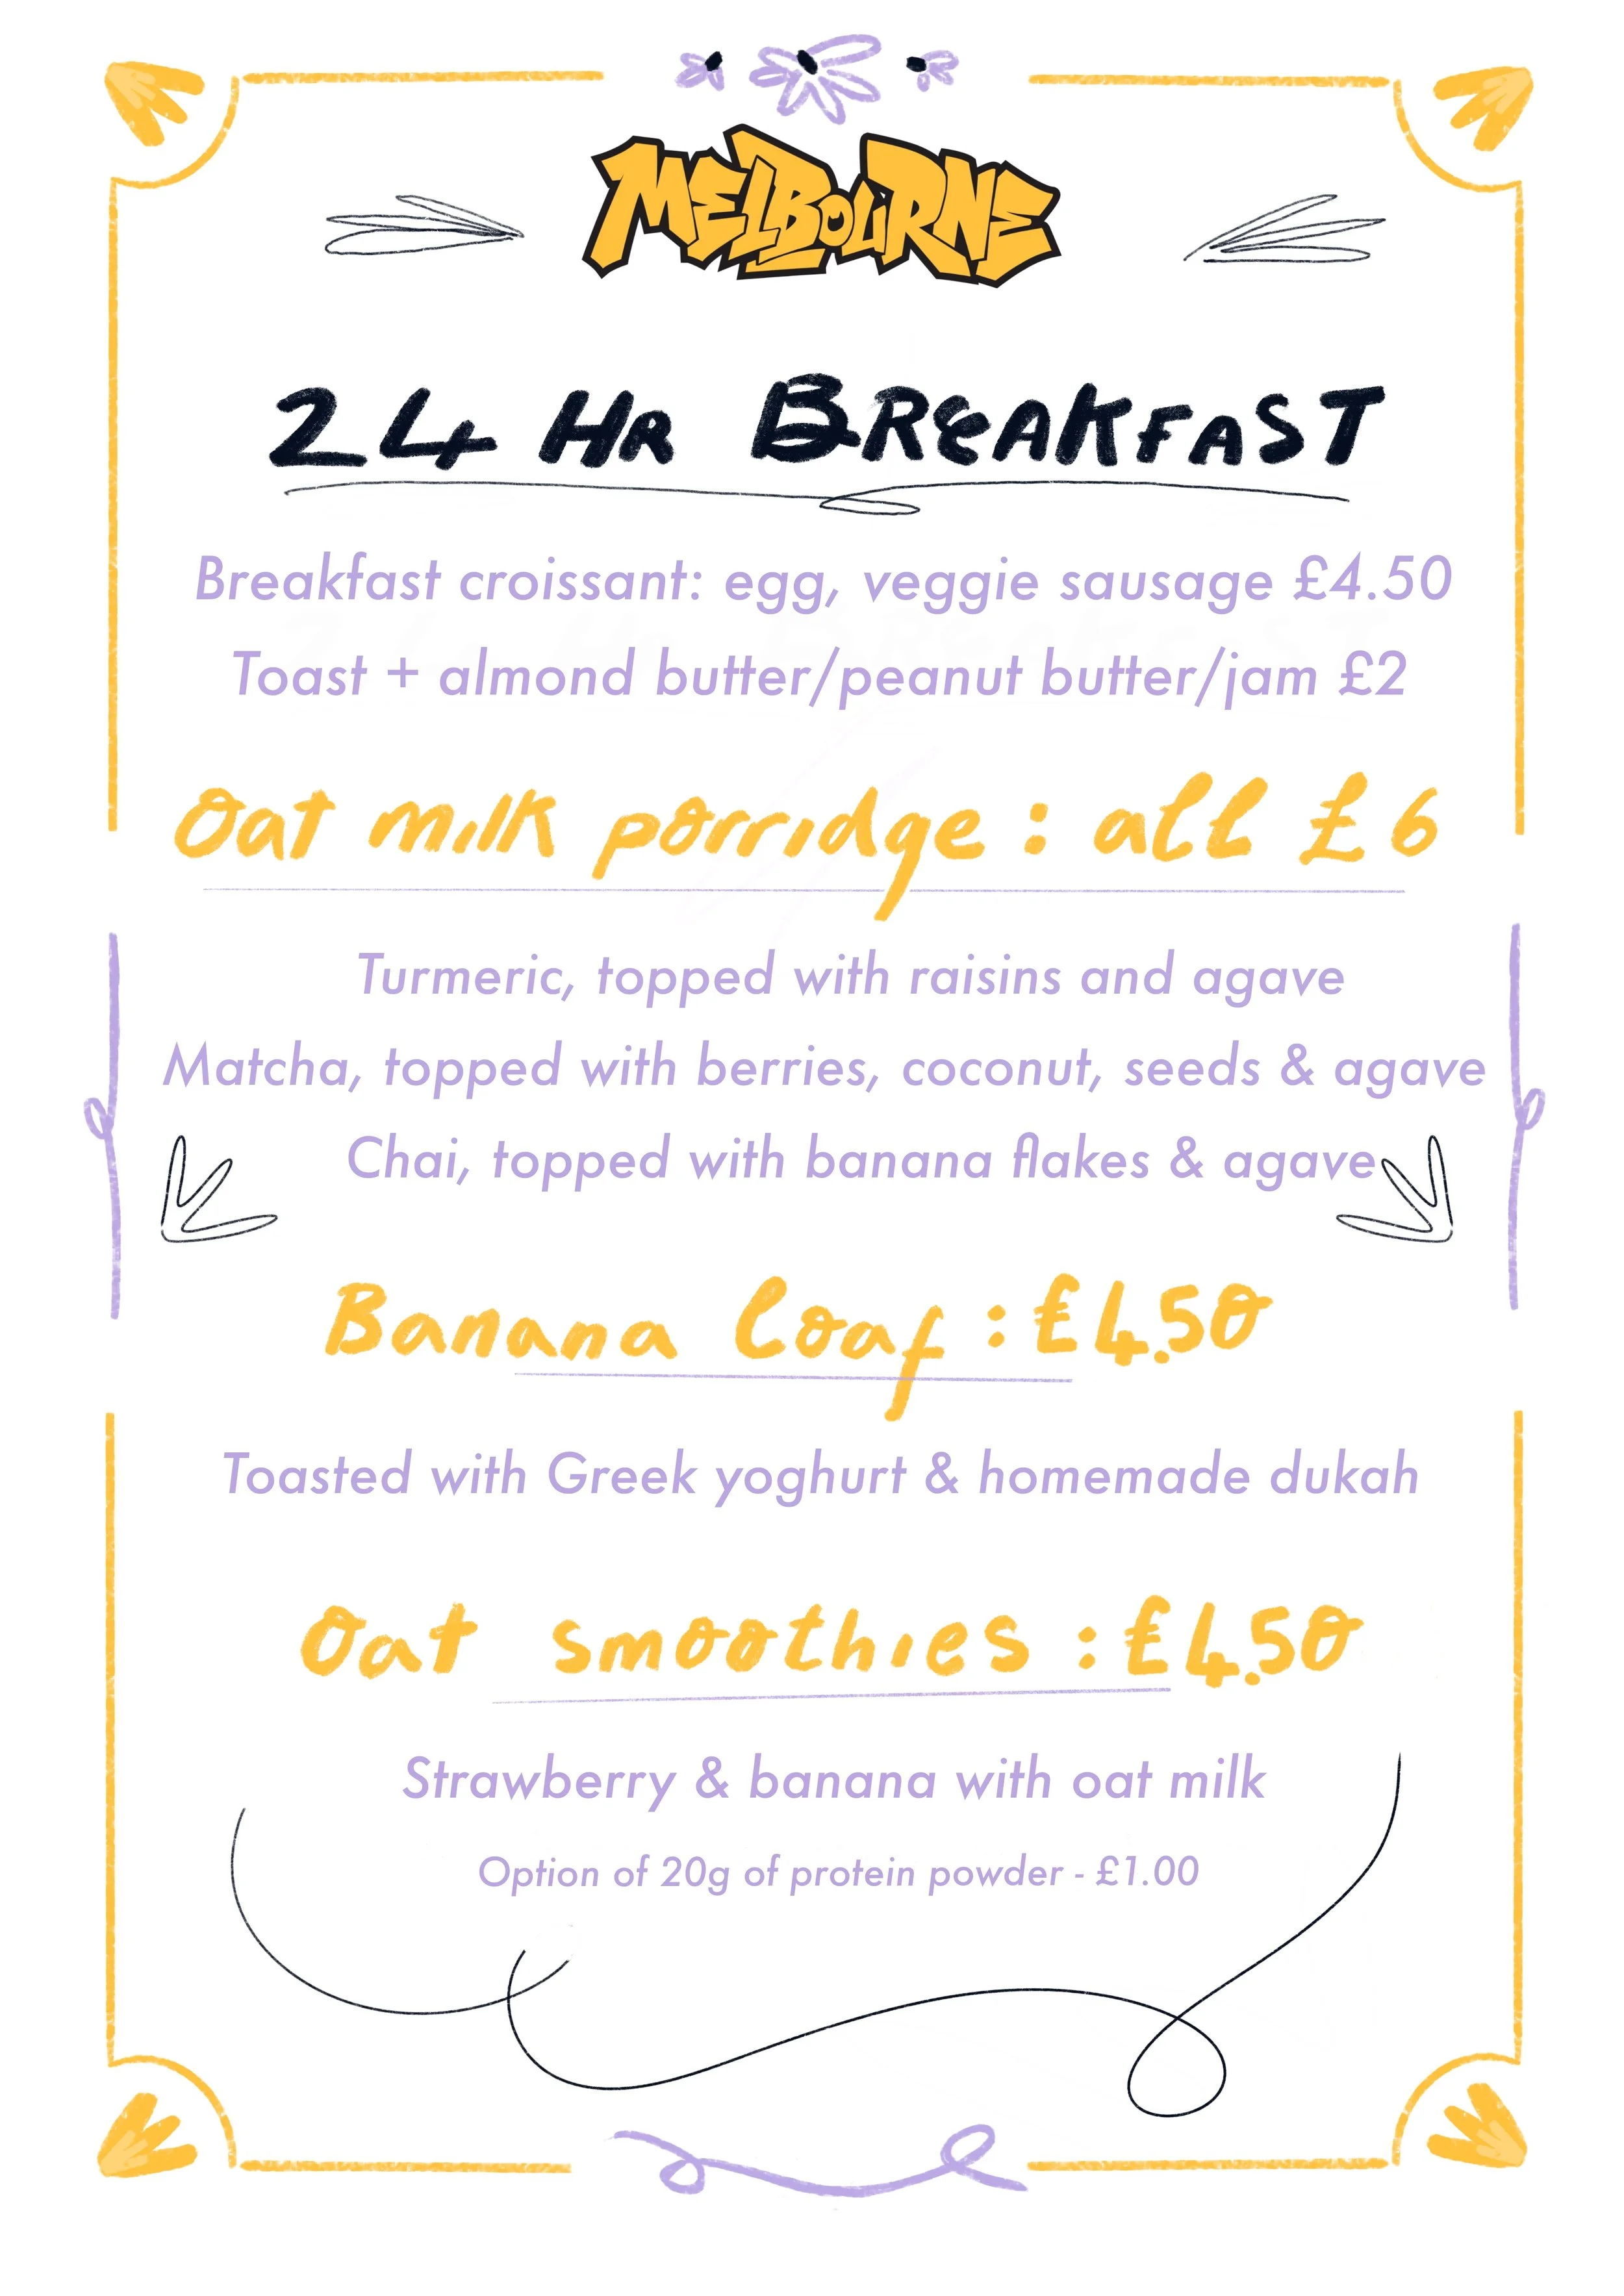 MELBOURNE
24 Hr BREAKFAST
Breakfast croissant: egg, veggie sausage £4.50
Toast + almond butter/peanut butter/jam £2
Oat milk porridge : all £6
Turmeric, topped with raisins and agave
Matcha, topped with berries, coconut, seeds & agave
Chai, topped with banana flakes & agave
Banana loaf : £4.50
Toasted with Greek yoghurt & homemade dukah
Oat smoothies : £4.50
Strawberry & banana with oat milk
Option of 20g of protein powder - £1.00